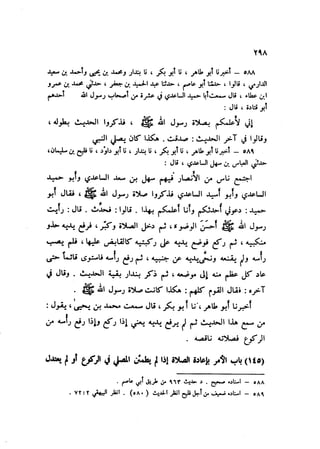 ٢٩٨
٥٨٨ – أخبرنا أبو طاهر ، نا أبو بكر ، نا بندار ومحمد بن يحيى وأحمد بن سعيد
الدارمي ، قالوا ، حدثنا أبو عاصم ، حدثنا عبد الحميد بن جعفر ، حدثني محمد بن عمرو
بن عطاء ، قال سمعت أبا حميد الساعدي في عشرة من أصحاب رسول الله أحدهم
أبو قتادة ، قال :
إني لأعلمكم بصلاة رسول الله ﷺ ، فذكروا الحديث بطوله ،
وقالوا في آخر الحديث : صدقت . هكذا كان يصلي النبي
٥٨٩ – أخبرنا أبو طاهر ، نا أبو بكر ، نا بندار ، نا أبو داود ، نا فليح بن سليمان ،
حدثني العباس بن سهل الساعدي ، قال :
اجتمع ناس من الأنصار فيهم سهل بن سعد الساعدي وأبو حميد
الساعدي وأبو أسيد الساعدي فذكروا صلاة رسول الله ﷺ ، فقال أبو
حميد : دعوني أحدثكم وأنا أعلمكم بهذا . قالوا : فحدث . قال : رأيت
رسول الله ﷺ أحسن الوضوء ، ثم دخل الصلاة ، وكبر ، فرفع يديه حذو
منكبيه ، ثم ركع فوضع يديه على ركبتيه كالقابض عليها ، فلم يصب
رأسه ولم يقنعه ونحى يديه عن جنبيه ، ثم رفع رأسه فاستوى قائماً حتى
عاد كل عظم منه إلى موضعه ، ثم ذكر بندار بقية الحديث . وقال في
آخره : فقال القوم كلهم : هكذا كانت صلاة رسول الله ﷺ .
أخبرنا أبو طاهر ، نا أبو بكر ، قال سمعت محمد بن يحيى ، يقول :
من سمع هذا الحديث ثم لم يرفع يديه يعني إذا ركع وإذا رفع رأسه من
الركوع فصلاته ناقصة .
(١٤٥) باب الأمر بإعادة الصلاة إذا لم يطمئن المصلي في الركوع أو لم يعتدل
٥٨٨ – اسناده صحيح . د حديث ٩٦٣ من طريق أبي عاصم .
٥٨٩ – اسناده ضعيف من أجل فليح انظر الحديث (٥٨٠) . انظر البيهقي ٢ : ٧٢